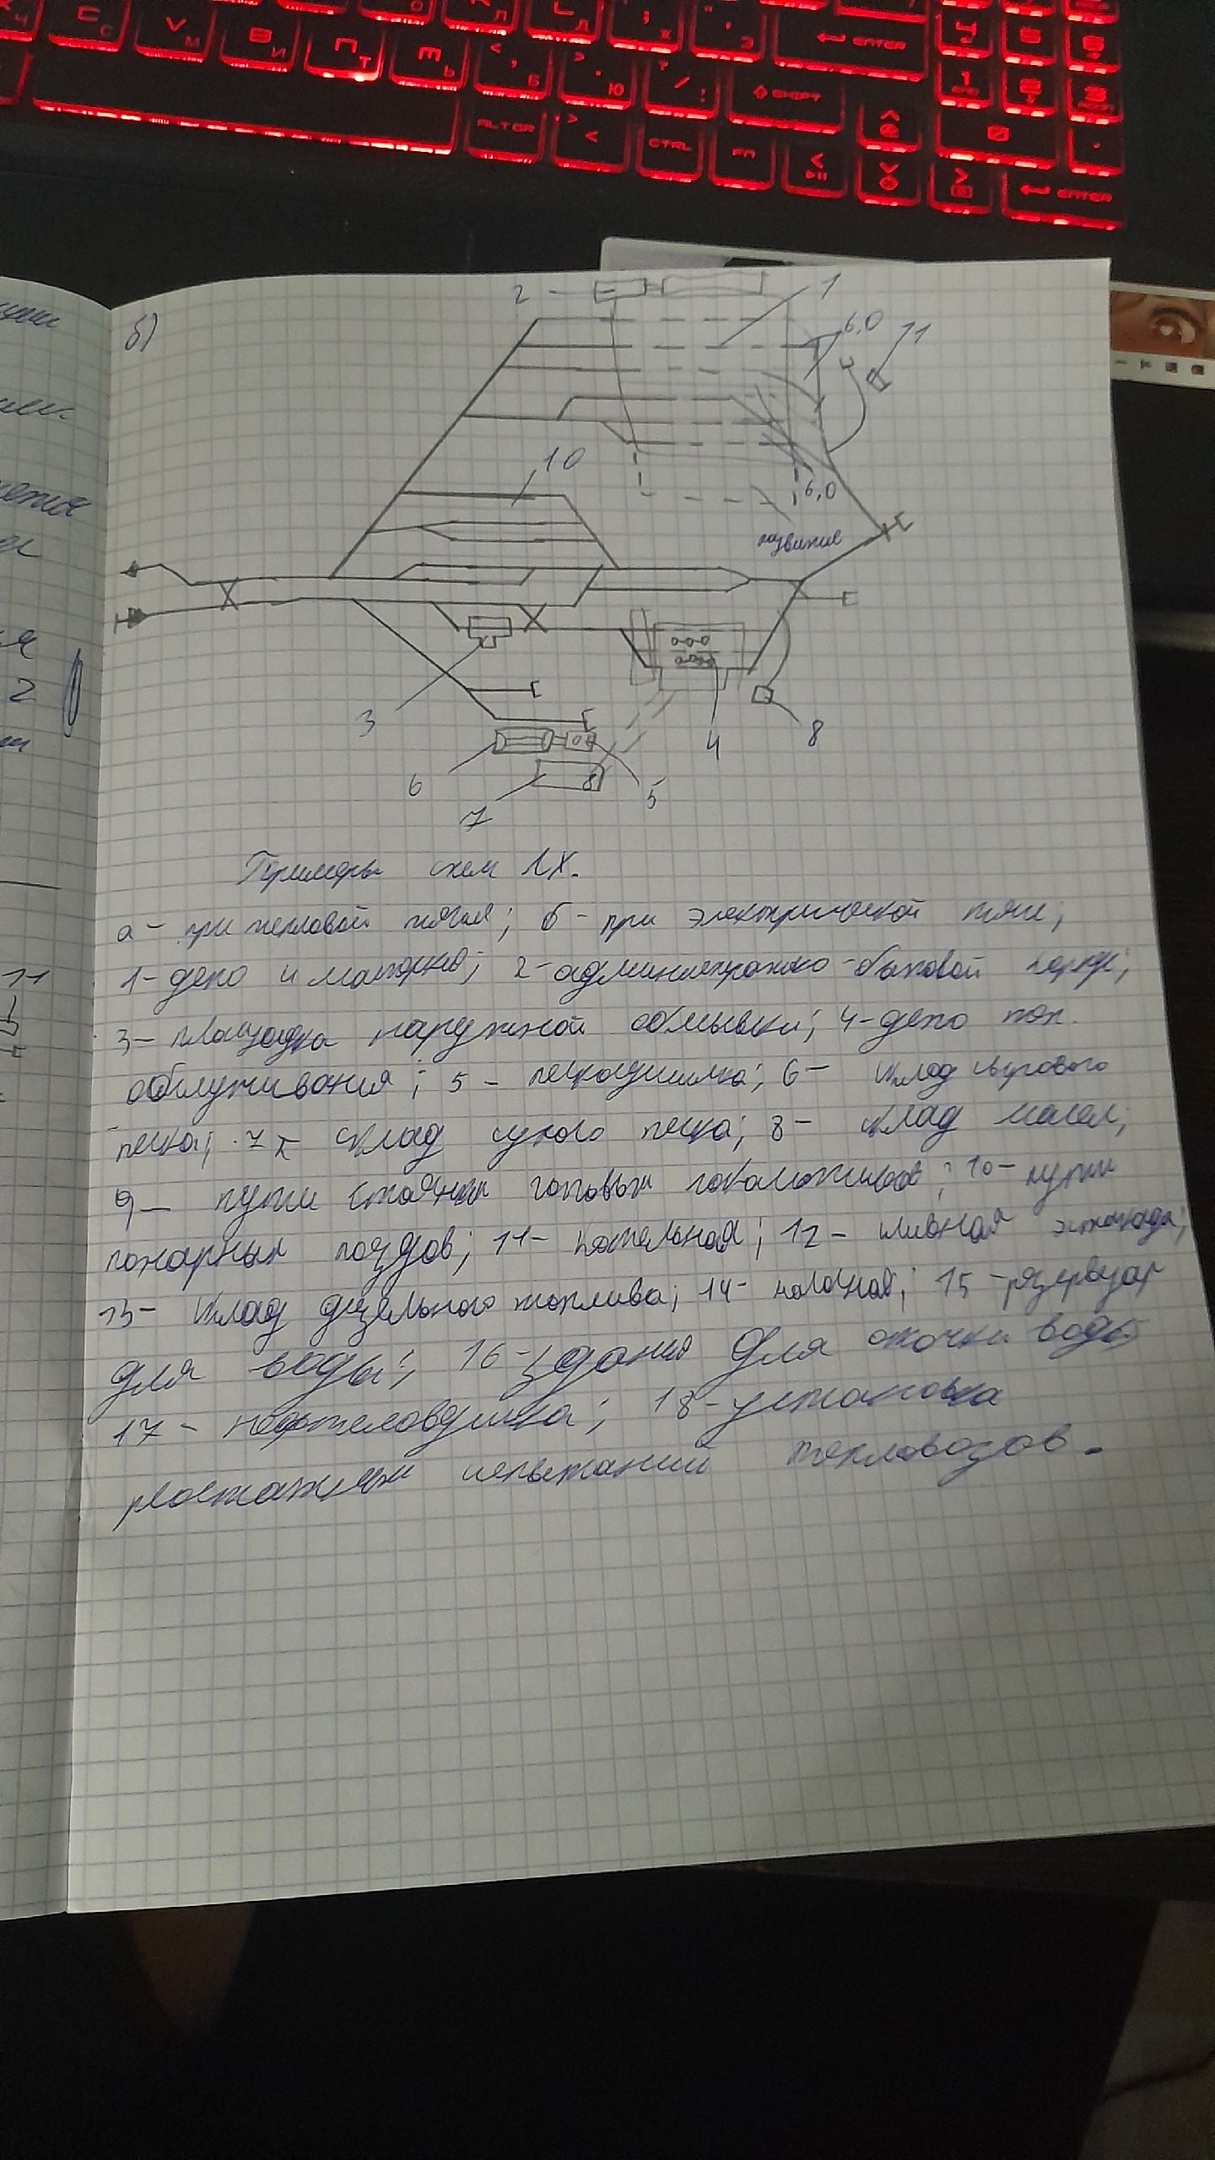 б)
2
1
6,0
11
10
6,0
развитие
3
4
8
6
5
7
8
Примеры схем ЛХ.
а – при тепловой тяге; б – при электрической тяге;
1 – депо и мастерские; 2 – административно-бытовой корпус;
3 – площадка наружной обмывки; 4 – депо тех.
обслуживания; 5 – пескосушилка; 6 – склад сырого
песка; 7 – склад сухого песка; 8 – склад масел;
9 – пути стоянки готовых локомотивов; 10 – пути
пожарных поездов; 11 – котельная; 12 – сливная эстакада;
13 – склад дизельного топлива; 14 – насосная; 15 – резервуар
для воды; 16 – здание для откачки воды
17 – нефтеловушка; 18 – установка
реостатных испытаний тепловозов.